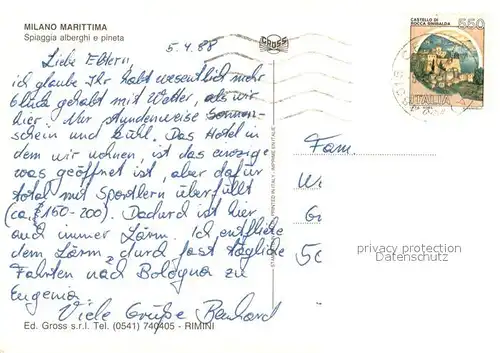 MILANO MARITTIMA
Spiaggia alberghi e pineta
5.4.88
Liebe Eltern,
ich glaube Ihr habt wesentlich mehr
Glück gehabt mit Wetter, als wir
hier. Nur stundenweise Sonnen-
schein und kühl. Das Hotel in
dem wir wohnen, ist das einzige
was geöffnet ist, aber dafür
total mit Sportlern überfüllt
(ca. 150-200). Dadurch ist hier
auch immer Lärm. Ich entfliehe
dem Lärm, durch fast tägliche
Fahrten nach Bologna zu
Eugenia.
Viele Grüße Bernhard
Ed. Gross s.r.l. Tel. (0541) 740405 - RIMINI
GROSS
PRINTED IN ITALY - IMPRIME EN ITALIE
CASTELLO DI
ROCCA SINIBALDA
550
ITALIA
Fam.
privacy protection
Datenschutz